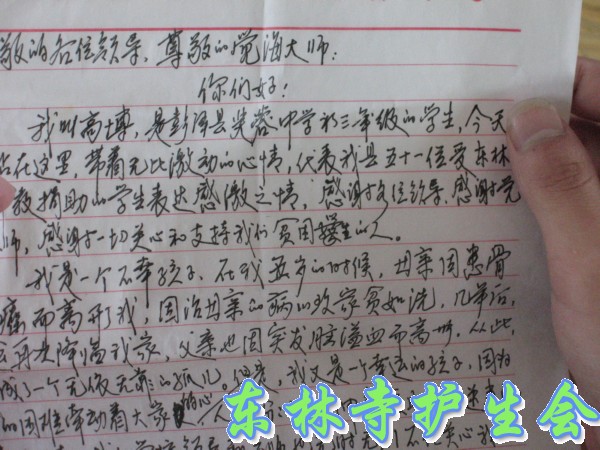 敬的各位领导，尊敬的觉海大师：
你们好！
我叫高博，是彭泽县芙蓉中学初三年级的学生，今天
站在这里，带着无比激动的心情，代表我县五十一位受东林
教捐助的学生表达感激之情，感谢各位领导，感谢觉
师，感谢一切关心和支持我们贫困的人。
我是一个不幸孩子，在我五岁的时候，母亲因患骨
癌而离开我，因治母亲的病的致家贫如洗，几年后，
再次降临我家，父亲也因突发脑溢血而离世，从此，
成了一个无依无靠的孤儿。但是，我又是一个幸运的孩子，因为
的困难牵动着大家的心，
东林寺护生会